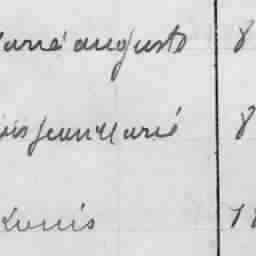 Marie auguste 8
Jean Marie 8
Louis 18